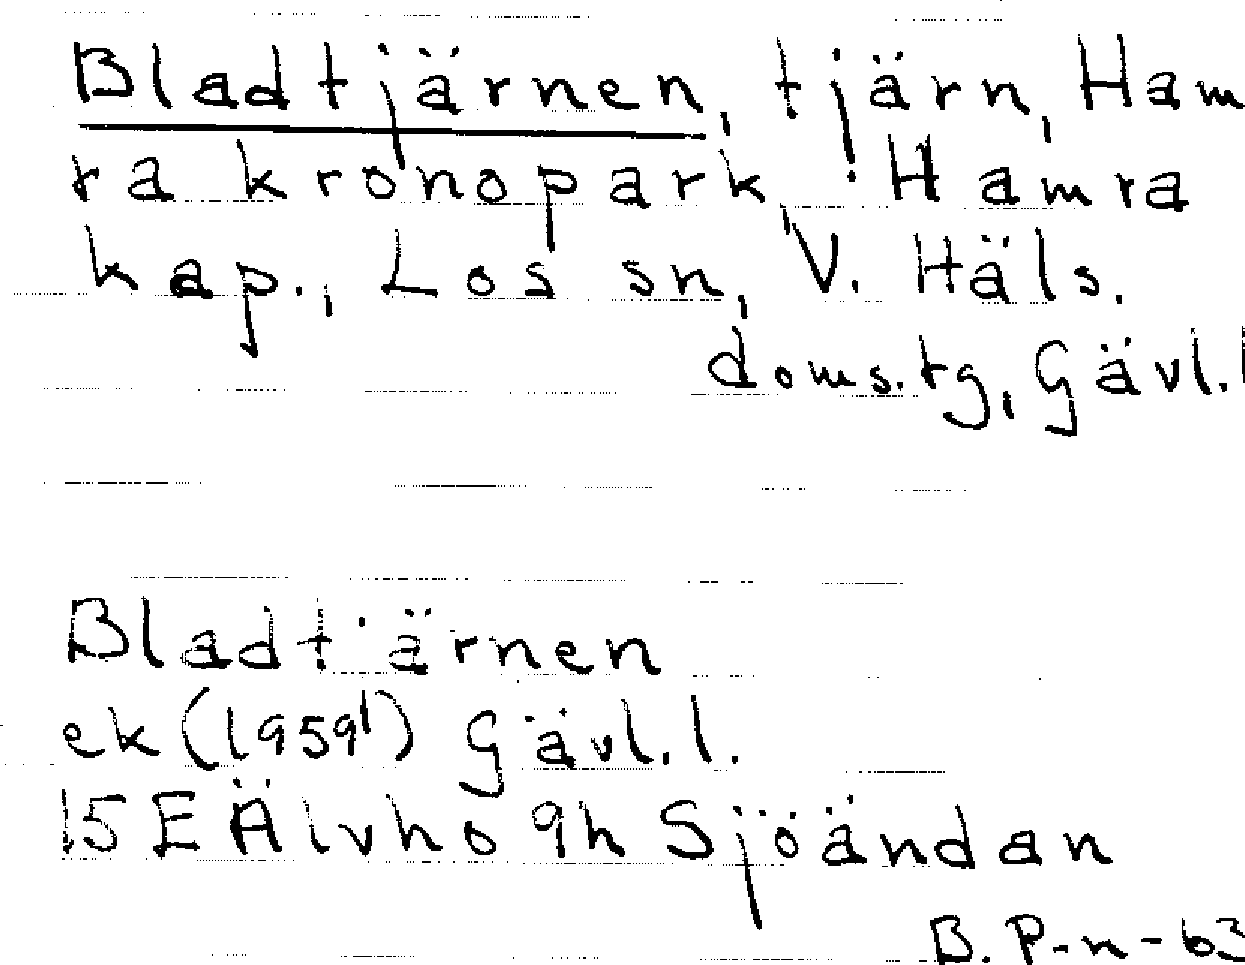 Bladtjärnen, tjärn, Ham
ra kronopark, Hamra
kap., Los sn, V. Häls.
doms.tg, Gävl.l
Bladtjärnen
ek (1959¹) Gävl.l.
15E Älvho 9h Sjöändan
B. P-n-63